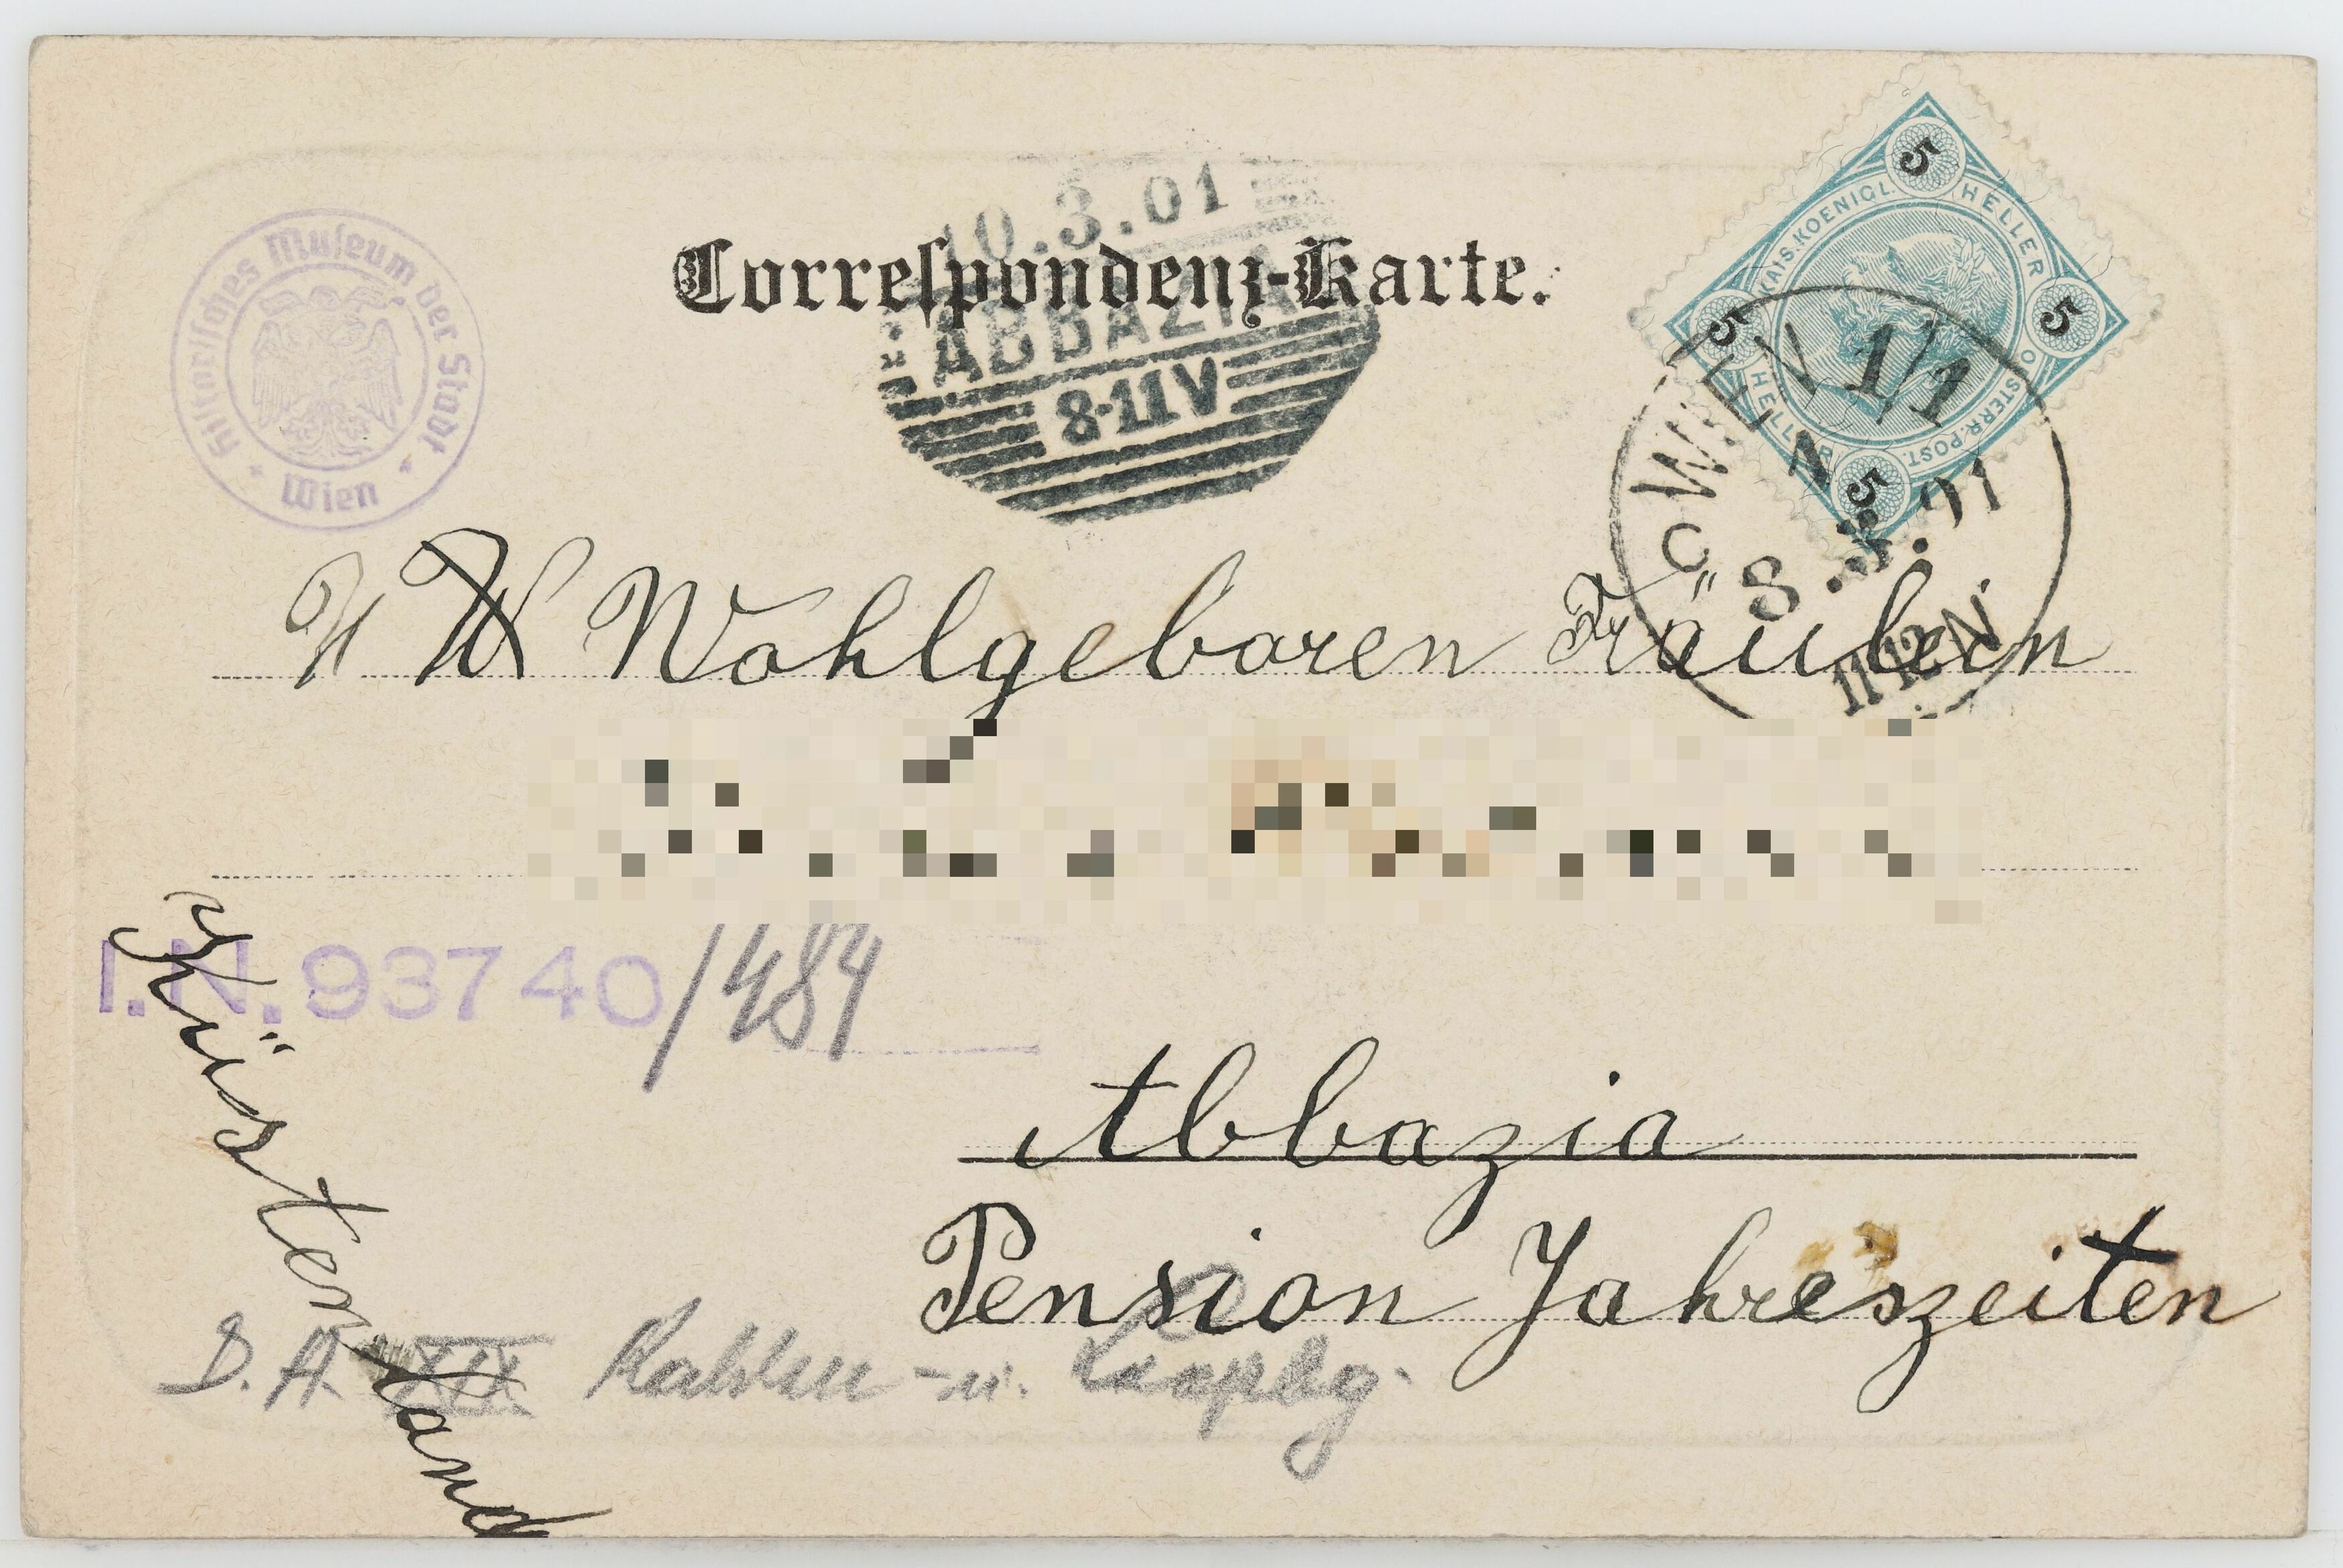 Historisches Museum der Stadt
Wien
10.3.01
Correspondenz-Karte.
ABBAZIA
8-11V
5 5 5 5
KAIS.KOENIGL. OESTERR.POST.
HELLER HELLER
WIEN 1/1
8. .01
Wohlgeboren Fräulein
I.N. 93740/484
Küstenland
Abbazia
Pension Jahreszeiten
D. A. XIX Kahlen - u.